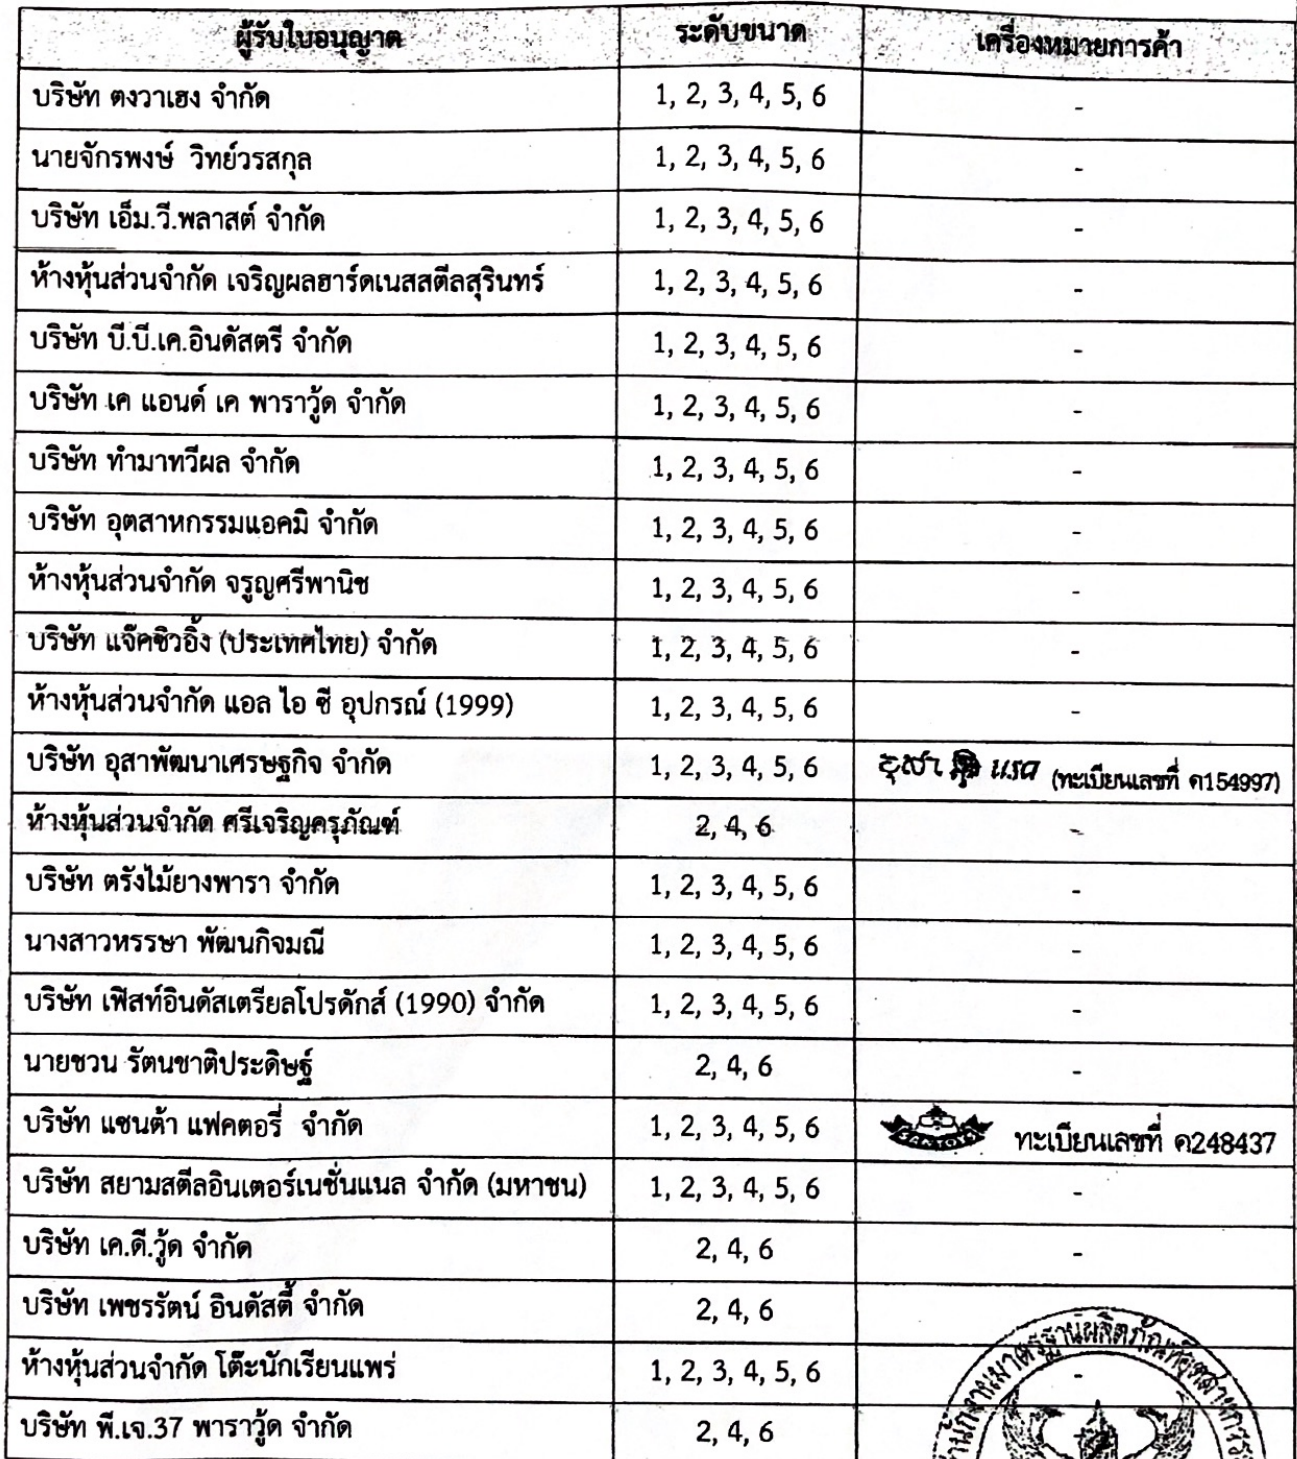 ผู้รับใบอนุญาต ระดับขนาด เครื่องหมายการค้า
บริษัท ตงวาเฮง จำกัด 1, 2, 3, 4, 5, 6 -
นายจักรพงษ์ วิทย์วรสกุล 1, 2, 3, 4, 5, 6 -
บริษัท เอ็ม.วี.พลาสต์ จำกัด 1, 2, 3, 4, 5, 6 -
ห้างหุ้นส่วนจำกัด เจริญผลฮาร์ดเนสสตีลสุรินทร์ 1, 2, 3, 4, 5, 6 -
บริษัท บี.บี.เค.อินดัสตรี จำกัด 1, 2, 3, 4, 5, 6 -
บริษัท เค แอนด์ เค พาราวู้ด จำกัด 1, 2, 3, 4, 5, 6 -
บริษัท ทำมาทวีผล จำกัด 1, 2, 3, 4, 5, 6 -
บริษัท อุตสาหกรรมแอคมิ จำกัด 1, 2, 3, 4, 5, 6 -
ห้างหุ้นส่วนจำกัด จรูญศรีพานิช 1, 2, 3, 4, 5, 6 -
บริษัท แจ๊คชิวอิ้ง (ประเทศไทย) จำกัด 1, 2, 3, 4, 5, 6 -
ห้างหุ้นส่วนจำกัด แอล ไอ ซี อุปกรณ์ (1999) 1, 2, 3, 4, 5, 6 -
บริษัท อุสาพัฒนาเศรษฐกิจ จำกัด 1, 2, 3, 4, 5, 6 อุสา แรด (ทะเบียนเลขที่ ค154997)
ห้างหุ้นส่วนจำกัด ศรีเจริญครุภัณฑ์ 2, 4, 6 -
บริษัท ตรังไม้ยางพารา จำกัด 1, 2, 3, 4, 5, 6 -
นางสาวหรรษา พัฒนกิจมณี 1, 2, 3, 4, 5, 6 -
บริษัท เฟิสท์อินดัสเตรียลโปรดักส์ (1990) จำกัด 1, 2, 3, 4, 5, 6 -
นายชวน รัตนชาติประดิษฐ์ 2, 4, 6 -
บริษัท แซนต้า แฟคตอรี่ จำกัด 1, 2, 3, 4, 5, 6 ทะเบียนเลขที่ ค248437
บริษัท สยามสตีลอินเตอร์เนชั่นแนล จำกัด (มหาชน) 1, 2, 3, 4, 5, 6 -
บริษัท เค.ดี.วู้ด จำกัด 2, 4, 6 -
บริษัท เพชรรัตน์ อินดัสตี้ จำกัด 2, 4, 6
ห้างหุ้นส่วนจำกัด โต๊ะนักเรียนแพร่ 1, 2, 3, 4, 5, 6 -
บริษัท พี.เจ.37 พาราวู้ด จำกัด 2, 4, 6
สำนักงานมาตรฐานผลิตภัณฑ์อุตสาหกรรม